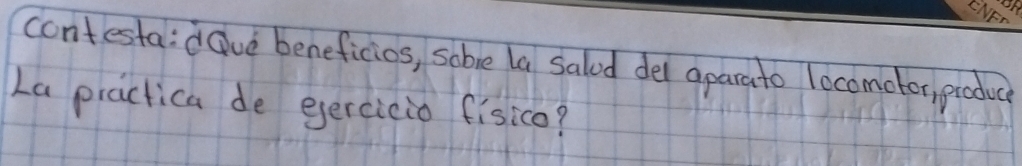 contesta: ¿Qué beneficios, sobre la salud del aparato locomotor, produce
La práctica de ejercicio físico?